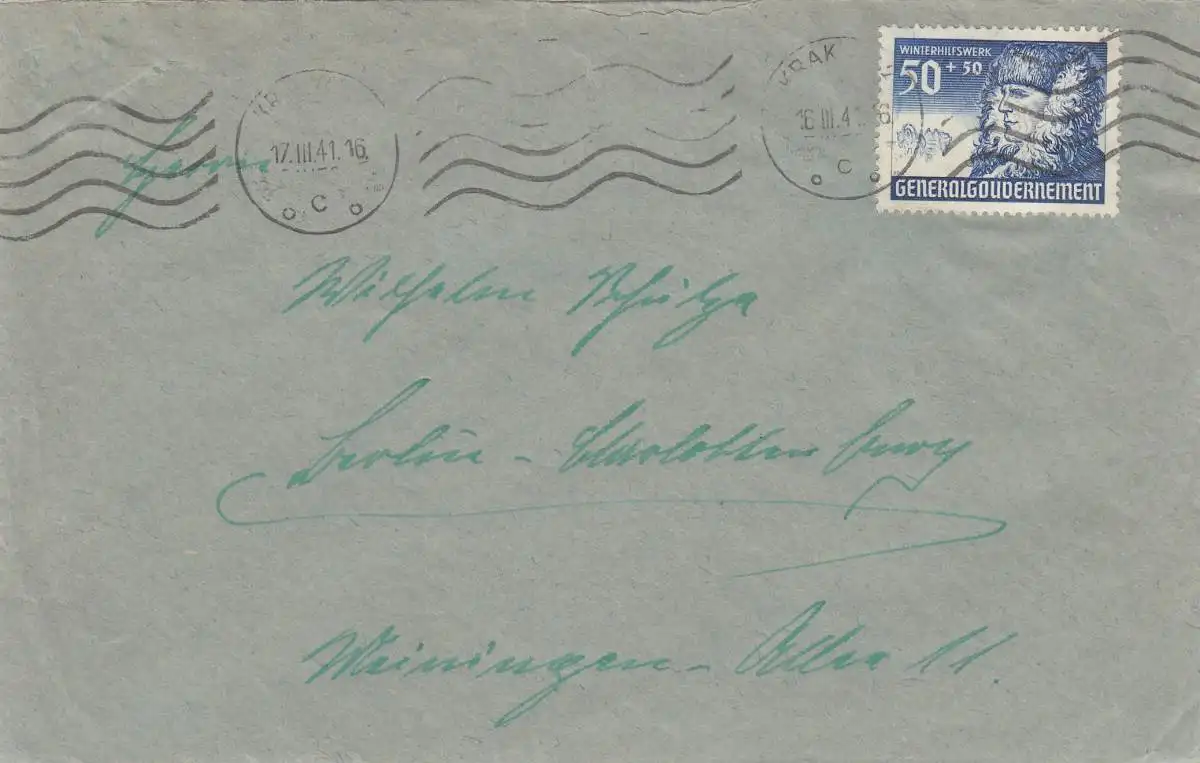 WINTERHILFSWERK
50 + 50
GENERALGOUVERNEMENT
KRAK
16 III.4
C
17.III.41.16
C
Herrn
Wilhelm Schulze
Berlin - Charlottenburg
Meiningen - Allee 11.